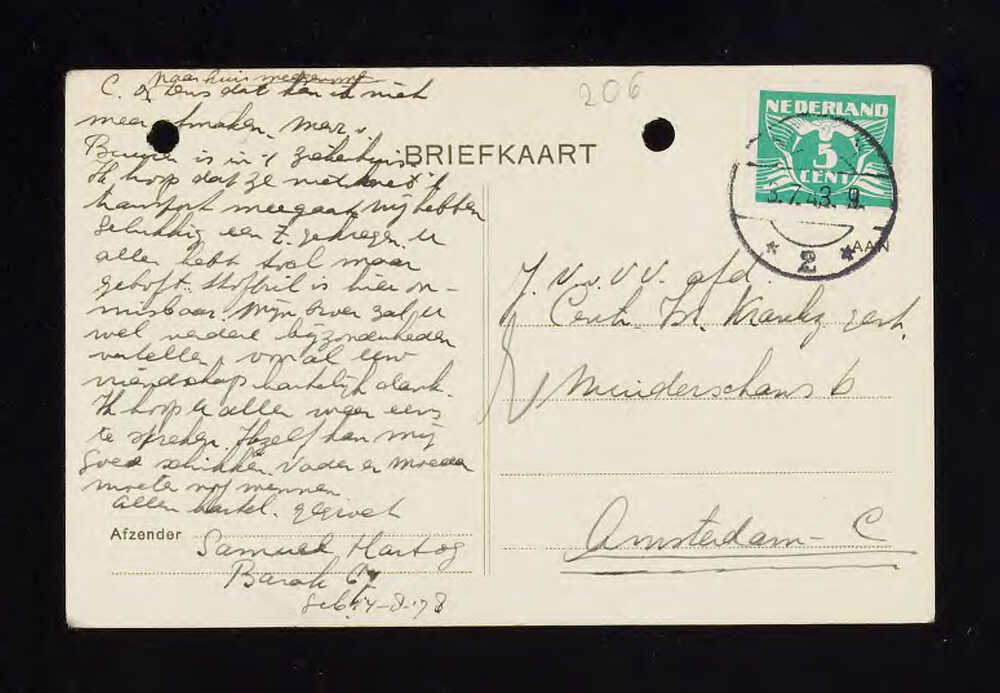 206
naar huis
C. O. eens dat kan ik niet
meer maken. Mevr.
Buuren is in 't ziekenhuis.
Ik hoop dat ze niet met 't
transport meegaat. Wij hebben
gelukkig een Z. gekregen. U
allen hebt
geboft. Stofbril is hier on-
misbaar. Mijn broer zal u
wel verdere bijzonderheden
vertellen, voor al uw
vriendschap hartelijk dank.
Ik hoop u allen weer eens
te spreken. Ikzelf kan mij
goed schikken. Vader en Moeder
moeten nog wennen
Allen hartel. gegroet
Afzender
Samuel Hartog
Barak 64
geb. 14-8-'78
BRIEFKAART
NEDERLAND
5
CENT
5.7.43. 9.
2
AAN
J. V. v. V. V. afd.
Centr. Krankz. gest.
Muiderschans 6
Amsterdam-C